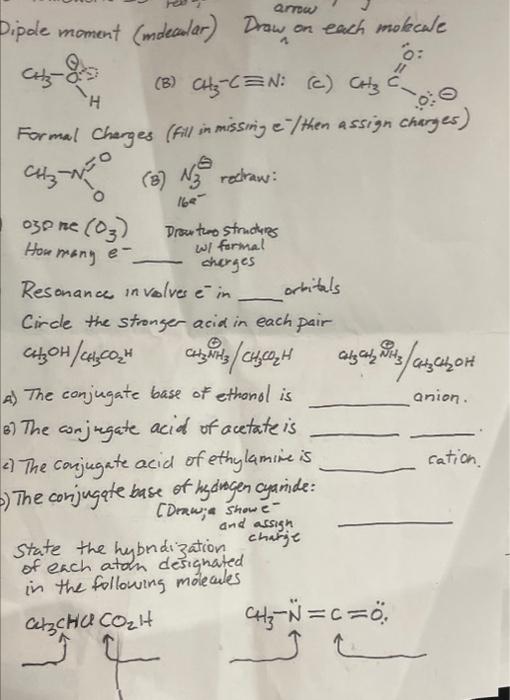 arrow
Dipole moment (molecular) Draw ^ on each molecule
CH3-O-H (B) CH3-C≡N: (C) CH3 C O: O: ⊖
Formal Charges (fill in missing e-/then assign charges)
CH3-N=O O (B) N3 ⊖ redraw:
16e-
ozone (O3) Draw two structures
How many e- ____ w/ formal
charges
Resonance involves e- in ____ orbitals
Circle the stronger acid in each pair
CH3OH/CH3CO2H CH3NH3⊕/CH3CO2H CH3CH2NH3⊕/CH3CH2OH
A) The conjugate base of ethanol is ________ anion.
B) The conjugate acid of acetate is ________ ________.
c) The conjugate acid of ethylamine is ________ cation.
) The conjugate base of hydrogen cyanide:
[Draw; show e-
and assign ________
charge
State the hybridization
of each atom designated
in the following molecules
CH3CHCl CO2H CH3-N̈=C=Ö: